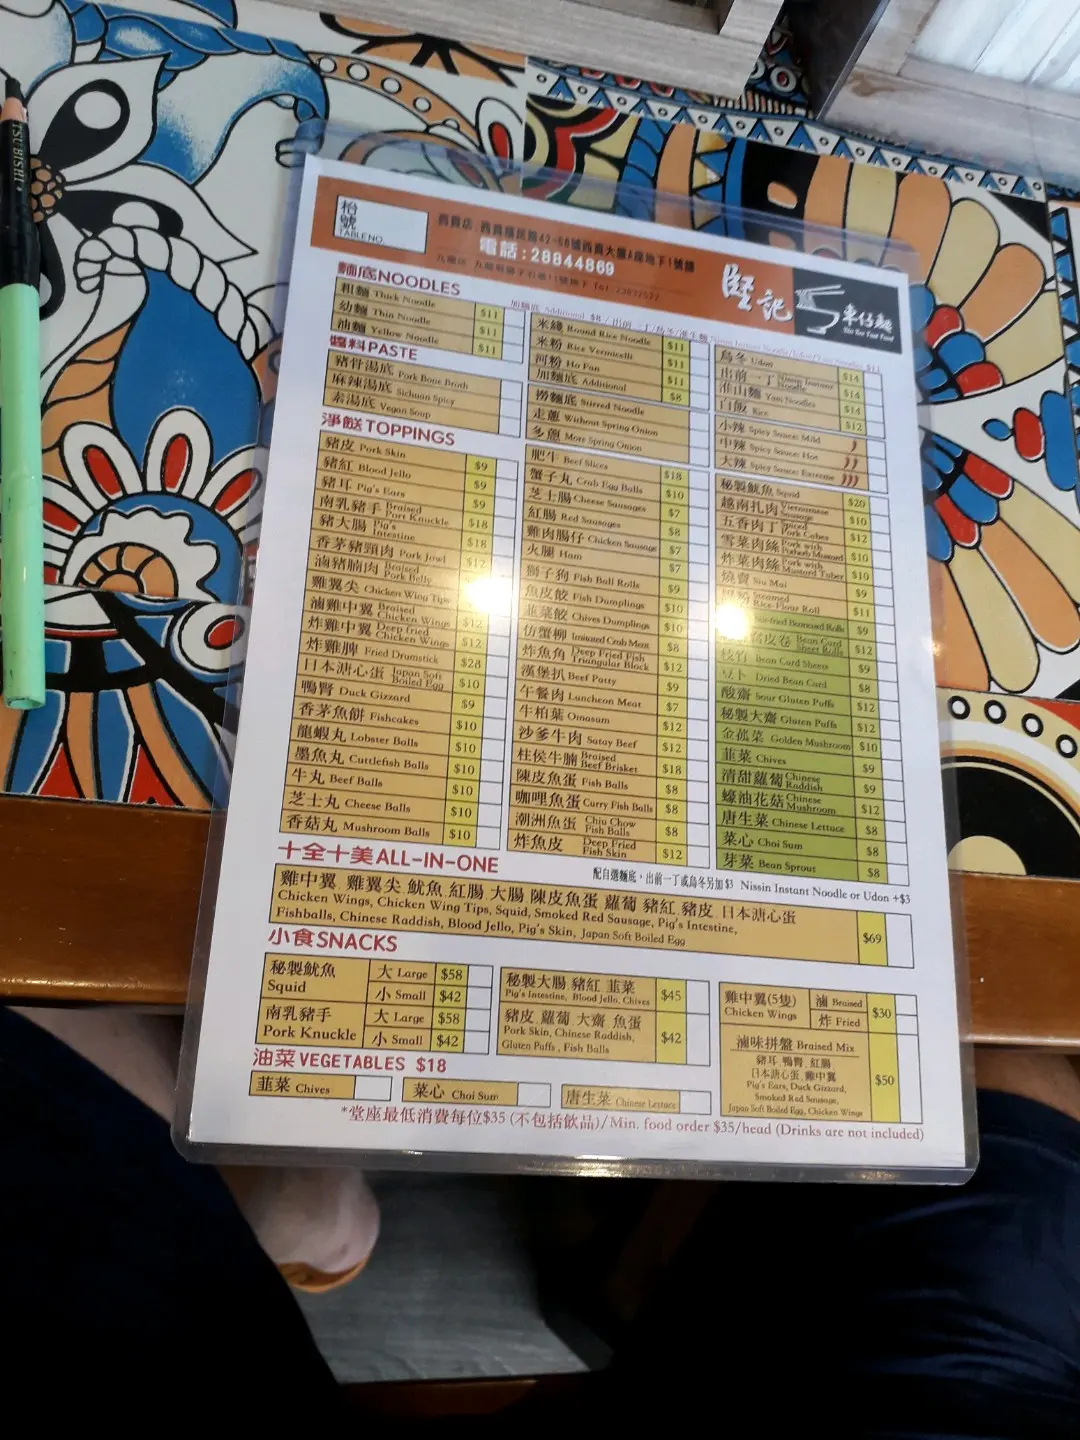 枱號
TABLE NO.
西貢店 西貢萬民路42-56號西貢大廈A座地下1號舖
電話:28844869
堅記
車仔麵
麵底NOODLES
粗麵 Thick Noodle $11
幼麵 Thin Noodle $11
油麵 Yellow Noodle $11
醬料PASTE
豬骨湯底 Pork Bone Broth
麻辣湯底 Sichuan Spicy
素湯底 Vegan Soup
米綫 Round Rice Noodle $11
米粉 Rice Vermicelli $11
河粉 Ho Fan $11
加麵底 Additional $8
撈麵底 Stirred Noodle
走蔥 Without Spring Onion
多蔥 More Spring Onion
烏冬 Udon $14
出前一丁 Nissin Instant Noodle $14
淮山麵 Yam Noodles $14
白飯 Rice $12
小辣 Spicy Sauce: Mild
中辣 Spicy Sauce: Hot
大辣 Spicy Sauce: Extreme
淨餸TOPPINGS
豬皮 Pork Skin $9
豬紅 Blood Jello $9
豬耳 Pig's Ears $9
南乳豬手 Braised Pork Knuckle $18
豬大腸 Pig's Intestine $18
香茅豬頸肉 Pork Jowl $12
滷豬腩肉 Braised Pork Belly
雞翼尖 Chicken Wing Tips
滷雞中翼 Braised Chicken Wings $12
炸雞中翼 Deep fried Chicken Wings $12
炸雞髀 Fried Drumstick $28
日本溏心蛋 Japan Soft Boiled Egg $10
鴨腎 Duck Gizzard $9
香茅魚餅 Fishcakes $10
龍蝦丸 Lobster Balls $10
墨魚丸 Cuttlefish Balls $10
牛丸 Beef Balls $10
芝士丸 Cheese Balls $10
香菇丸 Mushroom Balls $10
肥牛 Beef Slices $18
蟹子丸 Crab Egg Balls $10
芝士腸 Cheese Sausages $7
紅腸 Red Sausages $8
雞肉腸仔 Chicken Sausage $7
火腿 Ham $7
獅子狗 Fish Ball Rolls $9
魚皮餃 Fish Dumplings $10
韮菜餃 Chives Dumplings $10
仿蟹柳 Imitated Crab Meat $8
炸魚角 Deep Fried Fish Triangular Block $12
漢堡扒 Beef Patty $9
午餐肉 Luncheon Meat $7
牛柏葉 Omasum $12
沙爹牛肉 Satay Beef $12
柱侯牛腩 Braised Beef Brisket $18
陳皮魚蛋 Fish Balls $8
咖喱魚蛋 Curry Fish Balls $8
潮洲魚蛋 Chiu Chow Fish Balls $8
炸魚皮 Deep Fried Fish Skin $12
秘製魷魚 Squid $20
越南扎肉 Vietnamese Sausage $10
五香肉丁 Spiced Pork Cubes $12
雪菜肉絲 Pork with Potherb Mustard $10
炸菜肉絲 Pork with Mustard Tuber $10
燒賣 Siu Mai $9
Steamed Rice-Flour Roll $11
Beancurd Rolls $9
腐皮卷 Bean Curd Sheet Rolls $12
枝竹 Bean Curd Sheets $9
豆卜 Dried Bean Curd $8
酸齋 Sour Gluten Puffs $12
秘製大齋 Gluten Puffs $12
金菰菜 Golden Mushroom $10
韮菜 Chives $9
清甜蘿蔔 Chinese Raddish $9
蠔油花菇 Chinese Mushroom $12
唐生菜 Chinese Lettuce $8
菜心 Choi Sum $8
芽菜 Bean Sprout $8
十全十美 ALL-IN-ONE
配自選麵底,出前一丁或烏冬另加$3 Nissin Instant Noodle or Udon +$3
雞中翼 雞翼尖 魷魚 紅腸 大腸 陳皮魚蛋 蘿蔔 豬紅 豬皮 日本溏心蛋
Chicken Wings, Chicken Wing Tips, Squid, Smoked Red Sausage, Pig's Intestine,
Fishballs, Chinese Raddish, Blood Jello, Pig's Skin, Japan Soft Boiled Egg
$69
小食SNACKS
秘製魷魚 Squid
大 Large $58
小 Small $42
南乳豬手 Pork Knuckle
大 Large $58
小 Small $42
秘製大腸 豬紅 韮菜
Pig's Intestine, Blood Jello, Chives
$45
豬皮 蘿蔔 大齋 魚蛋
Pork Skin, Chinese Raddish,
Gluten Puffs, Fish Balls
$42
雞中翼(5隻) Chicken Wings
滷 Braised
炸 Fried
$30
滷味拼盤 Braised Mix
豬耳 鴨腎 紅腸
日本溏心蛋 雞中翼
Pig's Ears, Duck Gizzard,
Smoked Red Sausage,
Japan Soft Boiled Egg, Chicken Wing
$50
油菜 VEGETABLES $18
韮菜 Chives
菜心 Choi Sum
唐生菜 Chinese Lettuce
*堂座最低消費每位$35 (不包括飲品)/Min. food order $35/head (Drinks are not included)